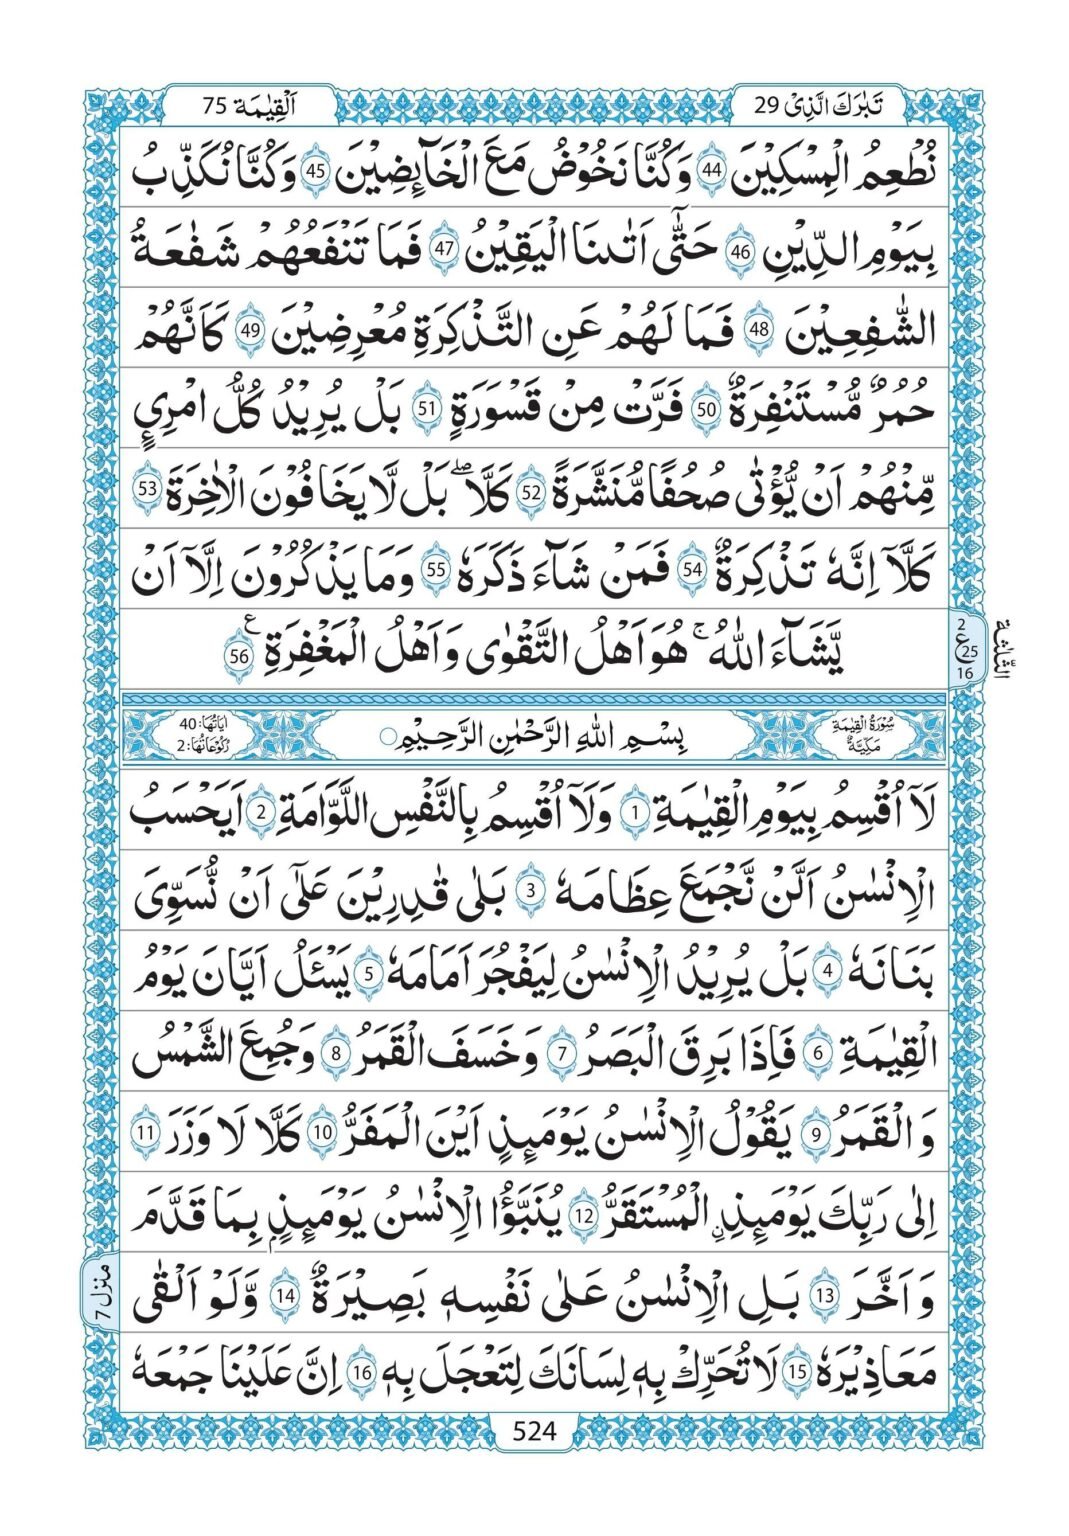 تَبٰرَكَ الَّذِیْ 29
اَلْقِیٰمَة 75
نُطْعِمُ الْمِسْكِیْنَ 44 وَكُنَّا نَخُوْضُ مَعَ الْخَآىِٕضِیْنَ 45 وَكُنَّا نُكَذِّبُ
بِیَوْمِ الدِّیْنِ 46 حَتّٰۤی اَتٰىنَا الْیَقِیْنُ 47 فَمَا تَنْفَعُهُمْ شَفٰعَةُ
الشّٰفِعِیْنَ 48 فَمَا لَهُمْ عَنِ التَّذْكِرَةِ مُعْرِضِیْنَ 49 كَاَنَّهُمْ
حُمُرٌ مُّسْتَنْفِرَةٌ 50 فَرَّتْ مِنْ قَسْوَرَةٍ 51 بَلْ یُرِیْدُ كُلُّ امْرِئٍ
مِّنْهُمْ اَنْ یُّؤْتٰی صُحُفًا مُّنَشَّرَةً 52 كَلَّا ؕ بَلْ لَّا یَخَافُوْنَ الْاٰخِرَةَ 53
كَلَّاۤ اِنَّهٗ تَذْكِرَةٌ 54 فَمَنْ شَآءَ ذَكَرَهٗ 55 وَمَا یَذْكُرُوْنَ اِلَّاۤ اَنْ
یَّشَآءَ اللّٰهُ ۚ هُوَ اَهْلُ التَّقْوٰی وَاَهْلُ الْمَغْفِرَةِ 56 ع
2
ع 25
16
الثّلٰثة
سُوْرَةُ الْقِیٰمَةِ مَكِّیَّةٌ
بِسْمِ اللّٰهِ الرَّحْمٰنِ الرَّحِیْمِ
اٰیَاتُهَا: 40
رُكُوْعَاتُهَا: 2
لَاۤ اُقْسِمُ بِیَوْمِ الْقِیٰمَةِ 1 وَلَاۤ اُقْسِمُ بِالنَّفْسِ اللَّوَّامَةِ 2 اَیَحْسَبُ
الْاِنْسٰنُ اَلَّنْ نَّجْمَعَ عِظَامَهٗ 3 بَلٰی قٰدِرِیْنَ عَلٰۤی اَنْ نُّسَوِّیَ
بَنَانَهٗ 4 بَلْ یُرِیْدُ الْاِنْسٰنُ لِیَفْجُرَ اَمَامَهٗ 5 یَسْـَٔلُ اَیَّانَ یَوْمُ
الْقِیٰمَةِ 6 فَاِذَا بَرِقَ الْبَصَرُ 7 وَخَسَفَ الْقَمَرُ 8 وَجُمِعَ الشَّمْسُ
وَالْقَمَرُ 9 یَقُوْلُ الْاِنْسٰنُ یَوْمَىِٕذٍ اَیْنَ الْمَفَرُّ 10 كَلَّا لَا وَزَرَ 11
اِلٰی رَبِّكَ یَوْمَىِٕذِ ِ۟الْمُسْتَقَرُّ 12 یُنَبَّؤُا الْاِنْسٰنُ یَوْمَىِٕذٍۭ بِمَا قَدَّمَ
وَاَخَّرَ 13 بَلِ الْاِنْسٰنُ عَلٰی نَفْسِهٖ بَصِیْرَةٌ 14 وَّلَوْ اَلْقٰی
مَعَاذِیْرَهٗ 15 لَا تُحَرِّكْ بِهٖ لِسَانَكَ لِتَعْجَلَ بِهٖ 16 اِنَّ عَلَیْنَا جَمْعَهٗ
منزل 7
524